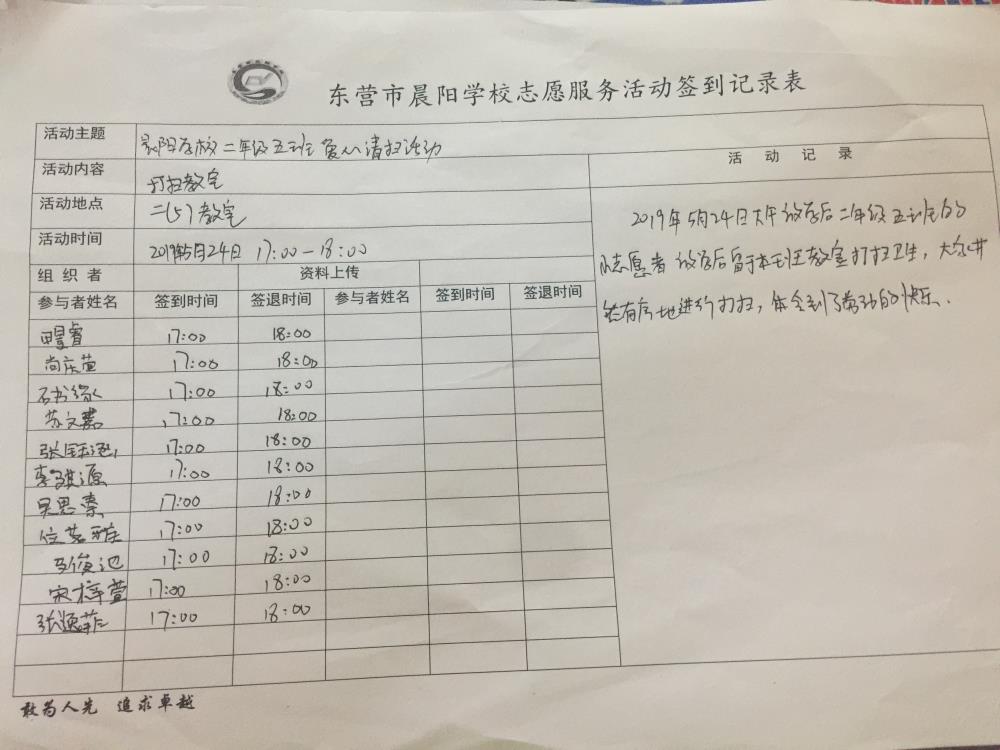 东营市晨阳学校志愿服务活动签到记录表
活动主题 晨阳学校二年级五班 清扫活动
活动内容 打扫教室
活动地点 二(5)教室
活动时间 2019年5月24日 17:00-18:00
组织者 资料上传
参与者姓名 签到时间 签退时间 参与者姓名 签到时间 签退时间
17:00 18:00
尚庆萱 17:00 18:00
石书缘 17:00 18:00
苏文嘉 17:00 18:00
张 17:00 18:00
李骐源 17:00 18:00
吴思秦 17:00 18:00
位 17:00 18:00
俊 17:00 18:00
宋梓萱 17:00 18:00
张逸菲 17:00 18:00
活动记录
2019年5月24日 放学后二年级五班的
小志愿者放学后留于本班教室打扫卫生,大家井
然有序地进行打扫,体会到了劳动的快乐.
敢为人先 追求卓越